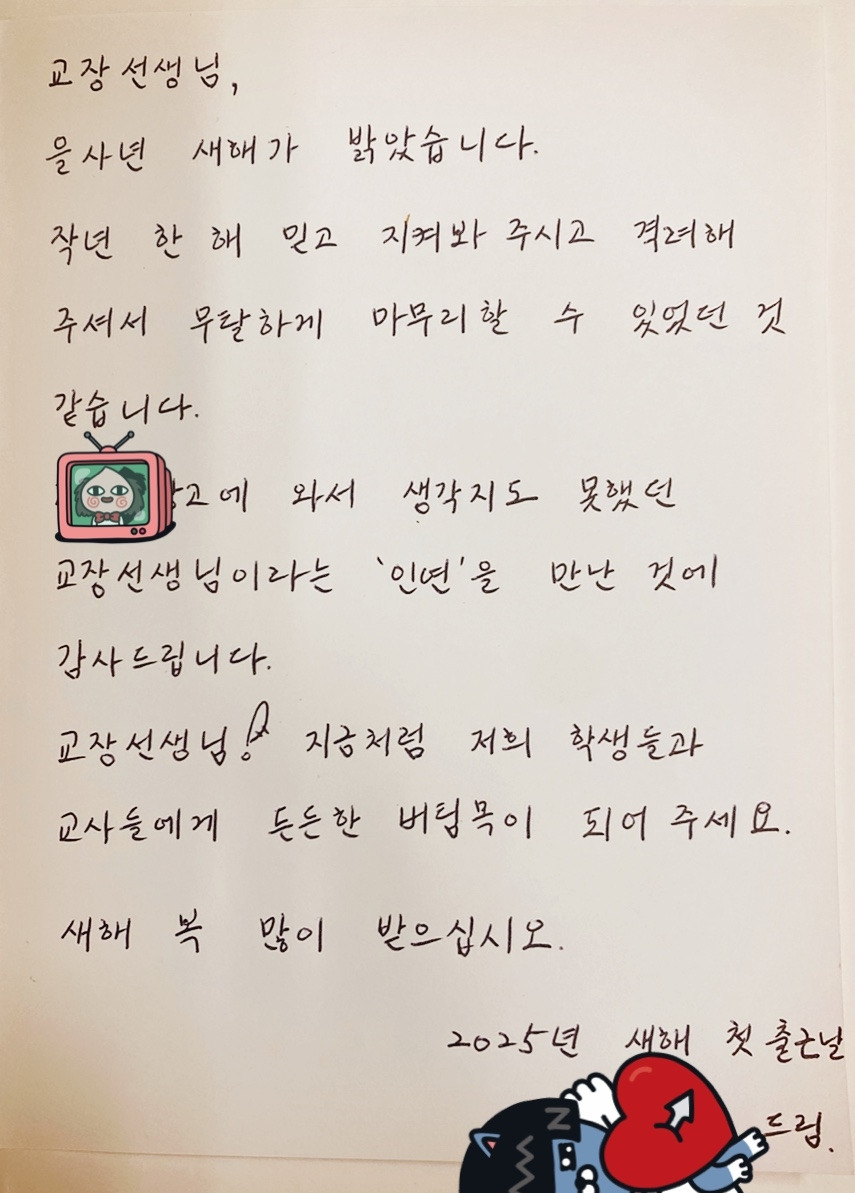 교장선생님,
을사년 새해가 밝았습니다.
작년 한 해 믿고 지켜봐 주시고 격려해
주셔서 무탈하게 마무리할 수 있었던 것
같습니다.
와서 생각지도 못했던
교장선생님이라는 '인연'을 만난 것에
감사드립니다.
교장선생님! 지금처럼 저희 학생들과
교사들에게 든든한 버팀목이 되어 주세요.
새해 복 많이 받으십시오.
2025년 새해 첫 출근날
드림.